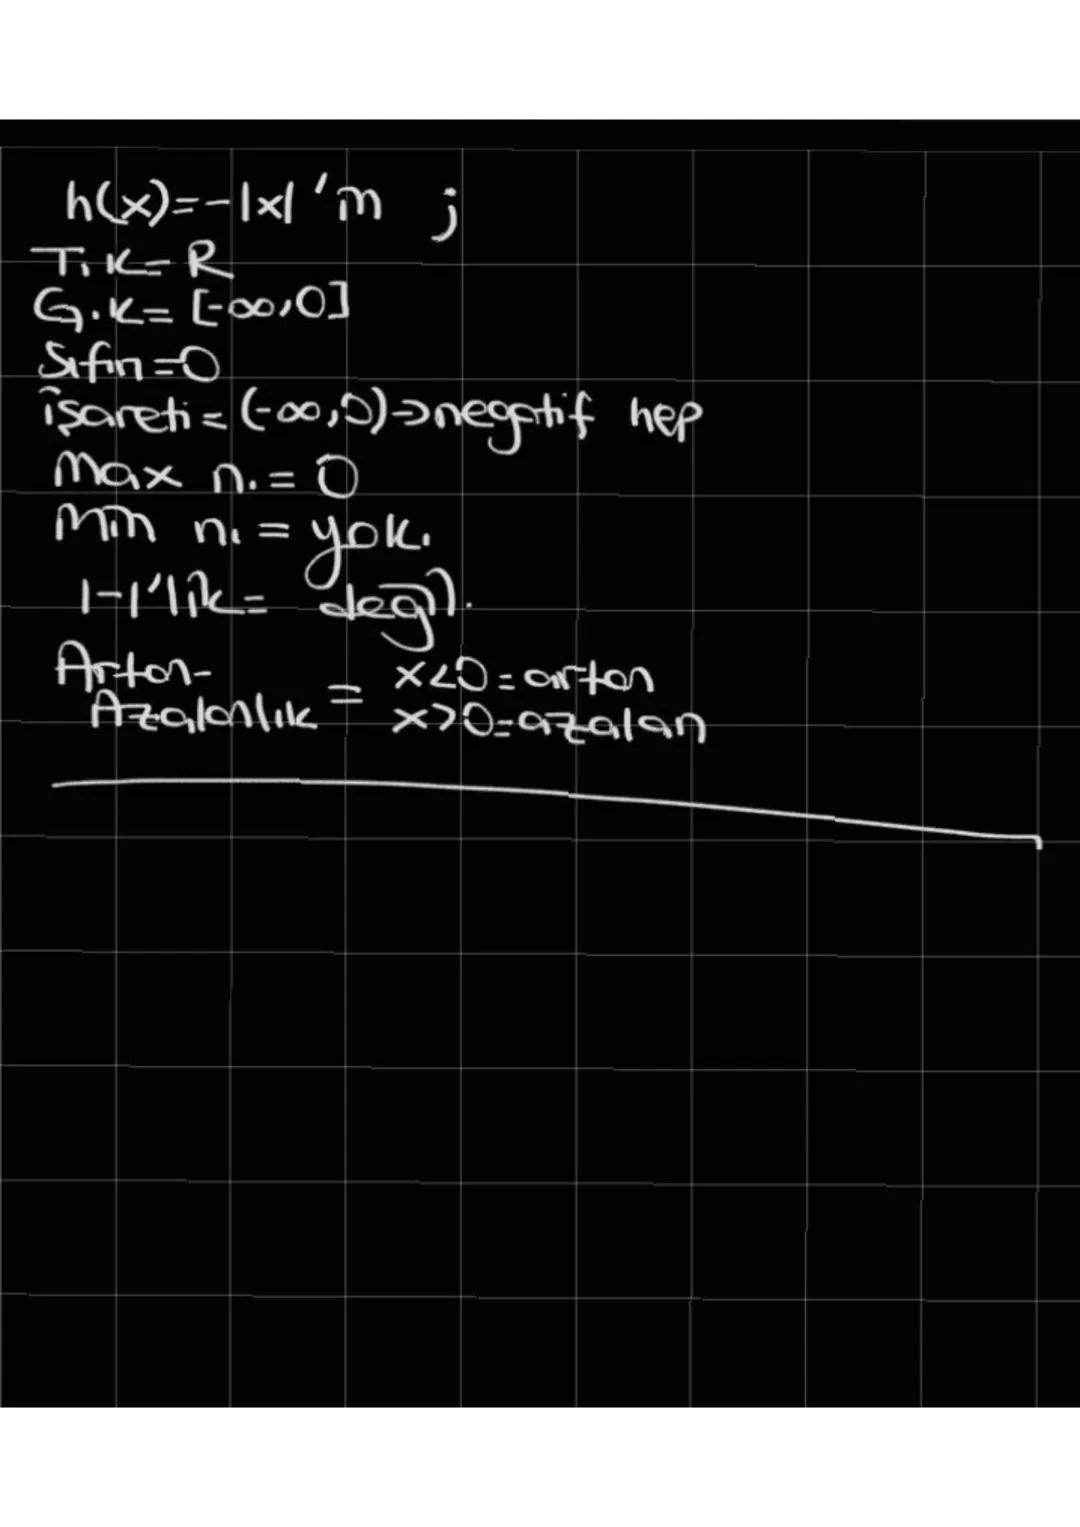 h(x)=-|x| 'in ;
T.K=R
G.K=[-∞,0]
Sıfırı=0
işareti=(-∞,0)→negatif hep
Max n.=0
Min n.=yok.
1-1'lik= değil.
Artan-
Azalanlık = x<0=artan
x>0=azalan